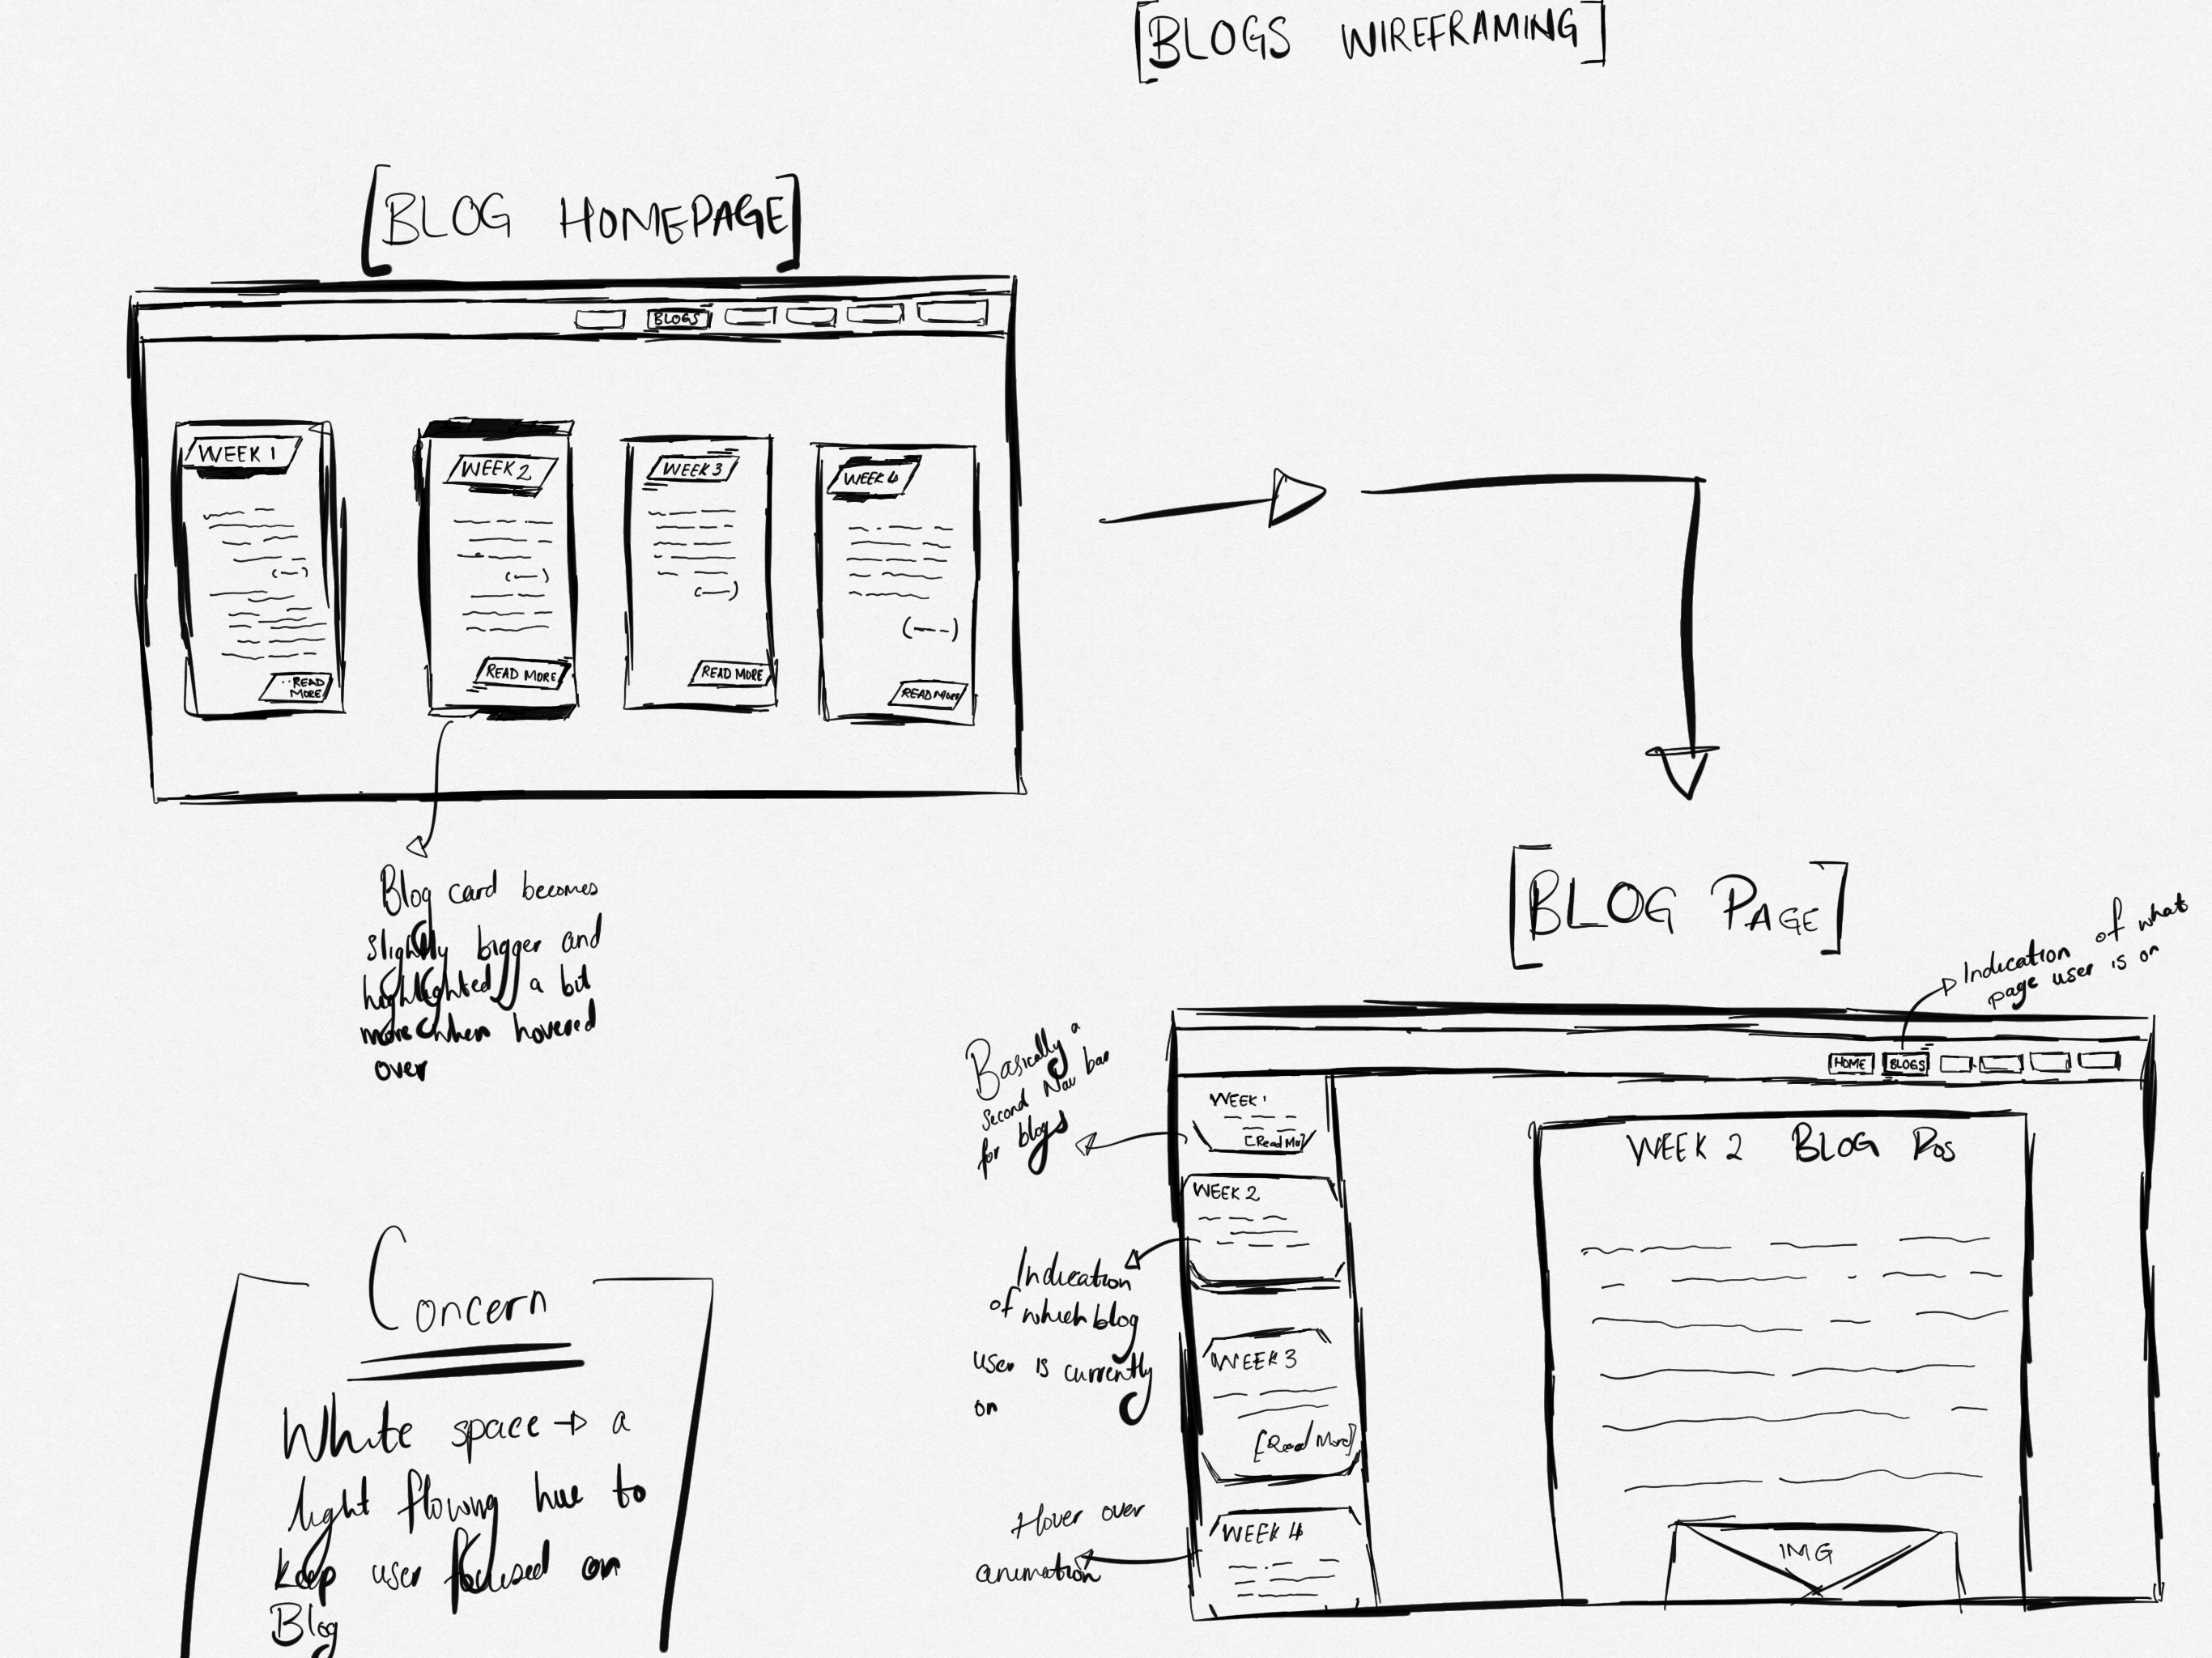 [BLOGS WIREFRAMING]
[BLOG HOMEPAGE]
BLOGS
WEEK 1
READ
MORE
WEEK 2
READ MORE
WEEK 3
READ MORE
WEEK 4
READ MORE
Blog card becomes
slightly bigger and
highlighted a bit
more when hovered
over
Concern
White space → a
light flowing hue to
keep user focused on
Blog
[BLOG PAGE]
Indication of what
page user is on
HOME
BLOGS
Basically a
second Nav bar
for blogs
WEEK 1
[Read Mo]
WEEK 2
Indication
of which blog
user is currently
on
WEEK 3
[Read More]
Hover over
animation
WEEK 4
WEEK 2 BLOG POS
IMG